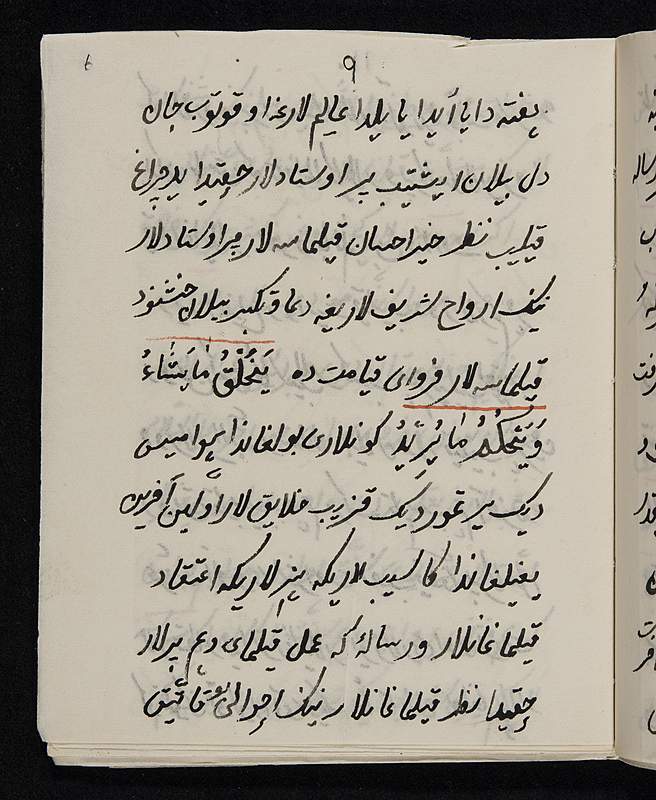 ۹
هفته دا یا آیدا یا ییلدا عالم لارغه اوقوتوب جان
دل بیلان ایشیتیب پیر اوستادلار حقیدا یر چراغ
قیلیب نظر خیر احسان قیلماسه لار پیر اوستادلار
نینک ارواح شریف لاریغه دعا و تکبیر بیلان خشنود
قیلماسه لار فردای قیامت ده یَخْلُقُ مَا یَشَاءُ
وَیَحْکُمُ مَا یُرِیْدُ کونلاری بولغاندا
دیک یر تمور دیک قزیب خلایق لار اولین آخرین
یغیلغاندا کاسب لاریکه پیر لاریکه اعتقاد
قیلماغانلار و رساله که عمل قیلمای دعم پیرلار
حقیدا نظر قیلماغانلار نینک احوالی قاتیق